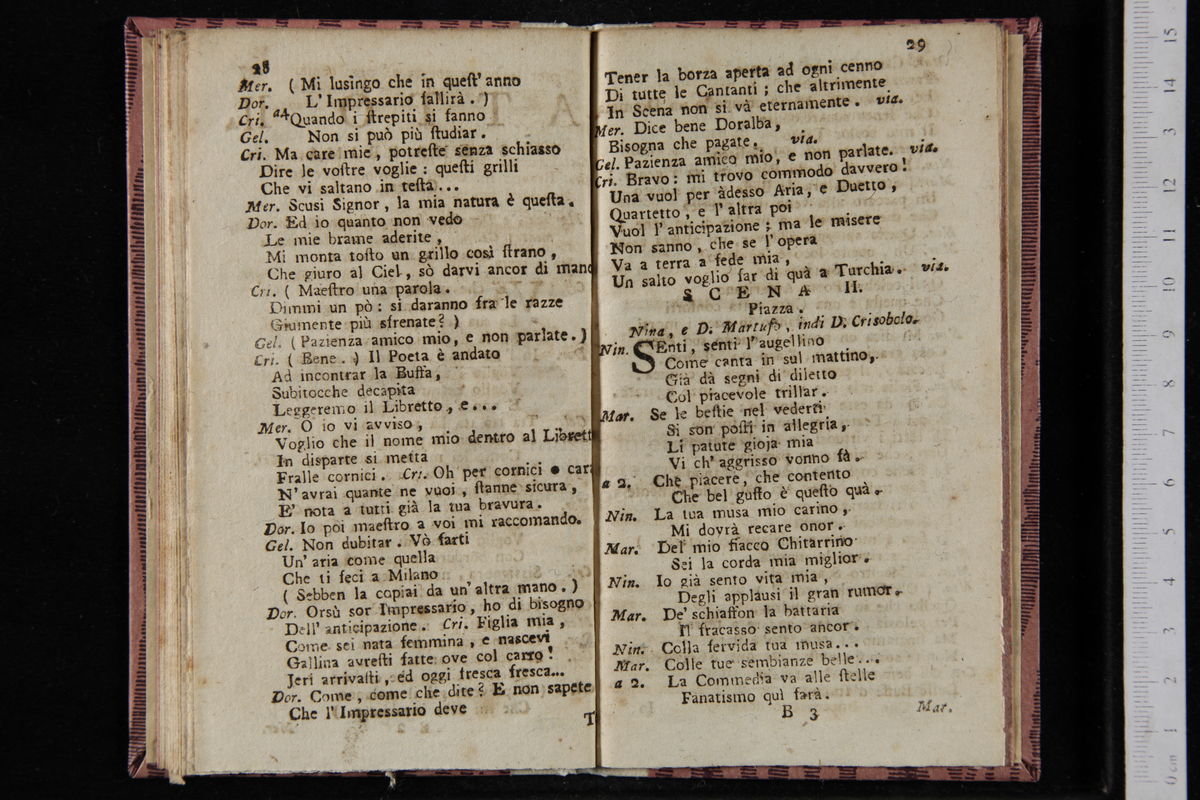 28
Mer. ( Mi lusingo che in queſt' anno
Dor. L' Impressario fallirà . )
Cri. a4 Quando i ſtrepiti si fanno
Gel. Non si può più ſtudiar .
Cri. Ma care mie , potreſte senza schiasso
Dire le voſtre voglie : queſti grilli
Che vi saltano in teſta ...
Mer. Scusi Signor , la mia natura è queſta .
Dor. Ed io quanto non vedo
Le mie brame aderite ,
Mi monta toſto un grillo così ſtrano ,
Che giuro al Ciel , sò darvi ancor di mano
Cri. ( Maeſtro una parola .
Dimmi un pò : si daranno fra le razze
Giumente più sfrenate ? )
Gel. ( Pazienza amico mio , e non parlate . )
Cri. ( Bene . ) Il Poeta è andato
Ad incontrar la Buffa ,
Subitocche decapita
Leggeremo il Libretto , e ...
Mer. O io vi avviso ,
Voglio che il nome mio dentro al Librett
In disparte si metta
Fralle cornici . Cri. Oh per cornici • car
N' avrai quante ne vuoi , ſtanne sicura ,
E' nota a tutti già la tua bravura .
Dor. Io poi maeſtro a voi mi raccomando .
Gel. Non dubitar . Vò farti
Un' aria come quella
Che ti feci a Milano
( Sebben la copiai da un' altra mano . )
Dor. Orsù sor Impressario , ho di bisogno
Dell' anticipazione . Cri. Figlia mia ,
Come sei nata femmina , e nascevi
Gallina avreſti fatte ove col carro !
Jeri arrivaſti , ed oggi fresca fresca ...
Dor. Come , come che dite ? E non sapete
Che l' Impressario deve
T
29
Tener la borza aperta ad ogni cenno
Di tutte le Cantanti ; che altrimente
In Scena non si và eternamente . via.
Mer. Dice bene Doralba ,
Bisogna che pagate . via.
Gel. Pazienza amico mio , e non parlate . via.
Cri. Bravo : mi trovo commodo davvero !
Una vuol per àdesso Aria , e Duetto ,
Quartetto , e l' altra poi
Vuol l' anticipazione ; ma le misere
Non sanno , che se l' opera
Va a terra a fede mia ,
Un salto voglio far di quà a Turchia . via.
S C E N A II.
Piazza .
Nina , e D. Martufo , indi D. Crisobolo .
Nin. SEnti , senti l' augellino
Come canta in sul mattino ,
Già dà segni di diletto
Col piacevole trillar .
Mar. Se le beſtie nel vederti
Si son poſti in allegria ,
Li patute gioja mia
Vi ch' aggrisso vonno fà .
a 2. Che piacere , che contento
Che bel guſto è queſto quà .
Nin. La tua musa mio carino ,
Mi dovrà recare onor .
Mar. Del mio fiacco Chitarrino
Sei la corda mia miglior .
Nin. Io già sento vita mia ,
Degli applausi il gran rumor .
Mar. De' schiaffon la battaria
Il fracasso sento ancor .
Nin. Colla fervida tua musa ...
Mar. Colle tue sembianze belle ...
a 2. La Commedia va alle ſtelle
Fanatismo quì farà .
B 3
Mar.